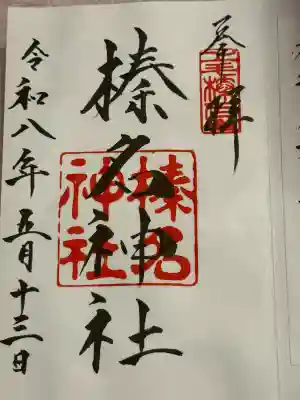 奉拝
榛名神社
榛名神社
令和八年五月十三日